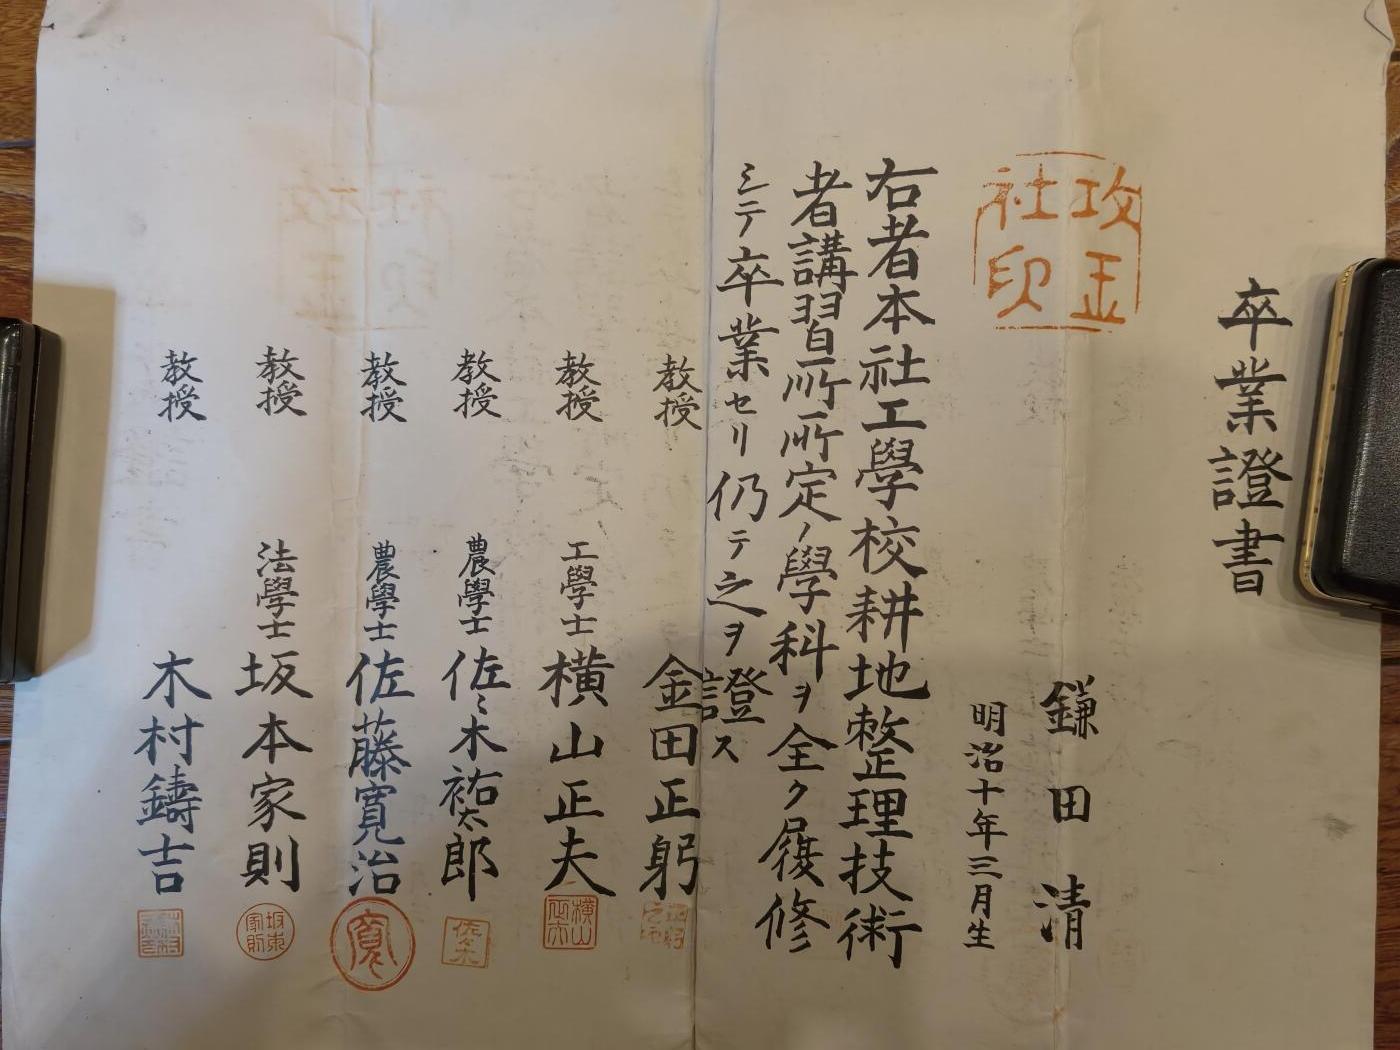 卒業證書
攻玉社印
鎌田清
明治十年三月生
右者本社工學校耕地整理技術
者講習所所定ノ學科ヲ全ク履修
シテ卒業セリ仍テ之ヲ證ス
教授 金田正躬
教授 工學士 横山正夫
横山正夫
教授 農學士 佐々木祐太郎
佐々木
教授 農學士 佐藤寛治
寛
教授 法學士 坂本家則
坂本家則
教授 木村鑄吉